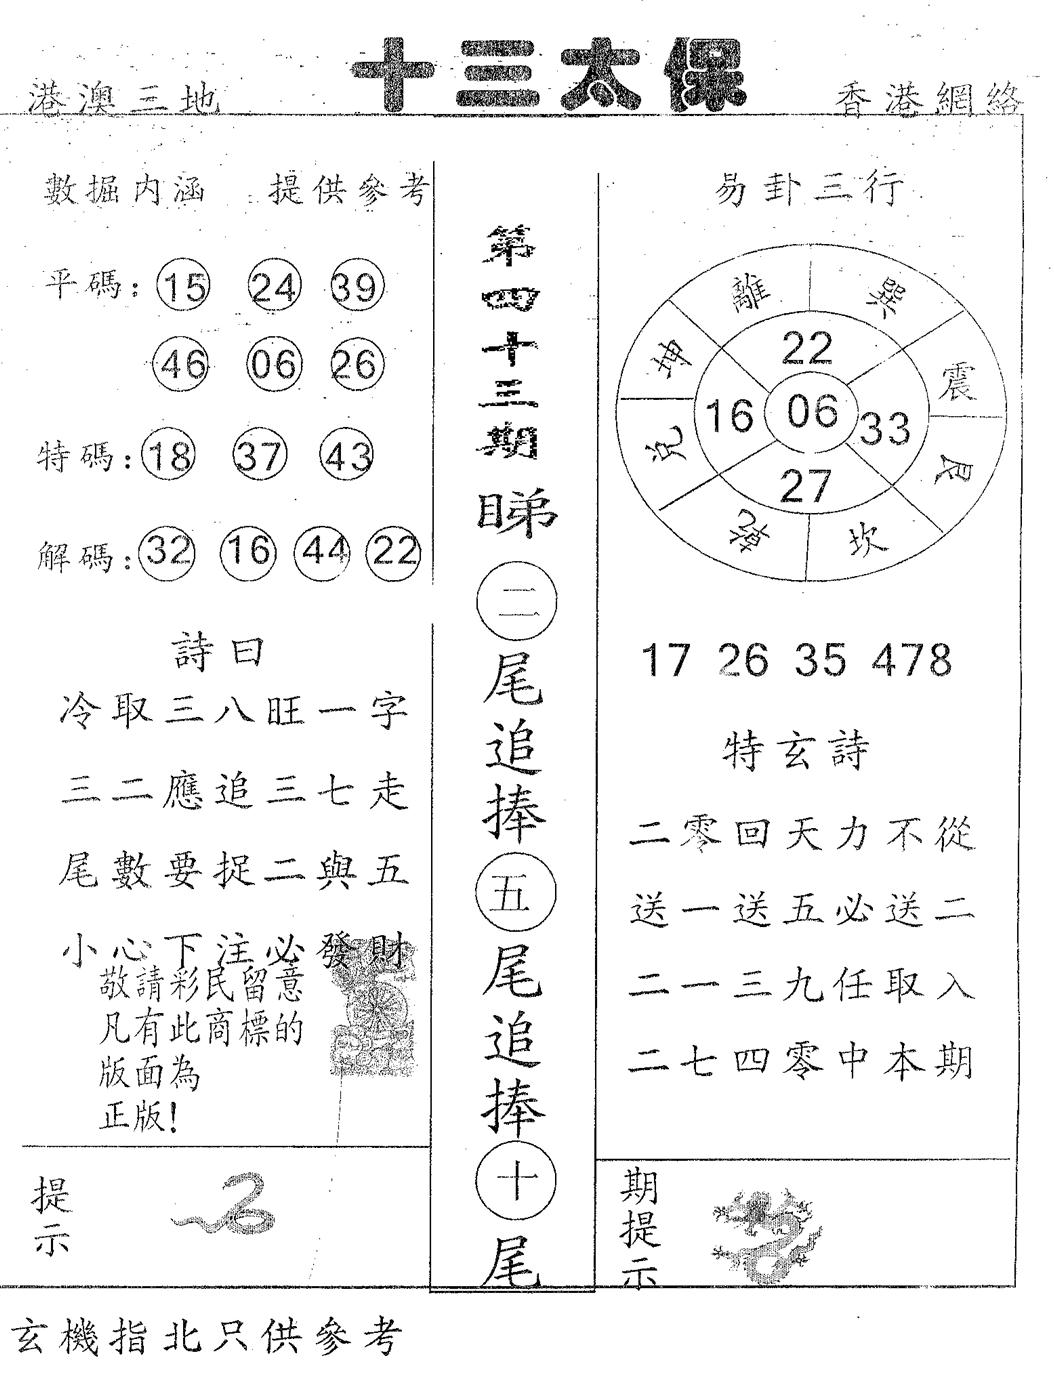 十三太保
港澳三地
香港網絡
數掘内涵 提供參考
平碼: 15 24 39
46 06 26
特碼: 18 37 43
解碼: 32 16 44 22
詩曰
冷取三八旺一字
三二應追三七走
尾數要捉二與五
小心下注必發財
敬請彩民留意
凡有此商標的
版面為
正版!
提示
第四十三期
睇二尾追捧五尾追捧十尾
易卦三行
離 巽
坤 震
兌 艮
乾 坎
22
16 06 33
27
17 26 35 478
特玄詩
二零回天力不從
送一送五必送二
二一三九任取入
二七四零中本期
期提示
玄機指北只供參考